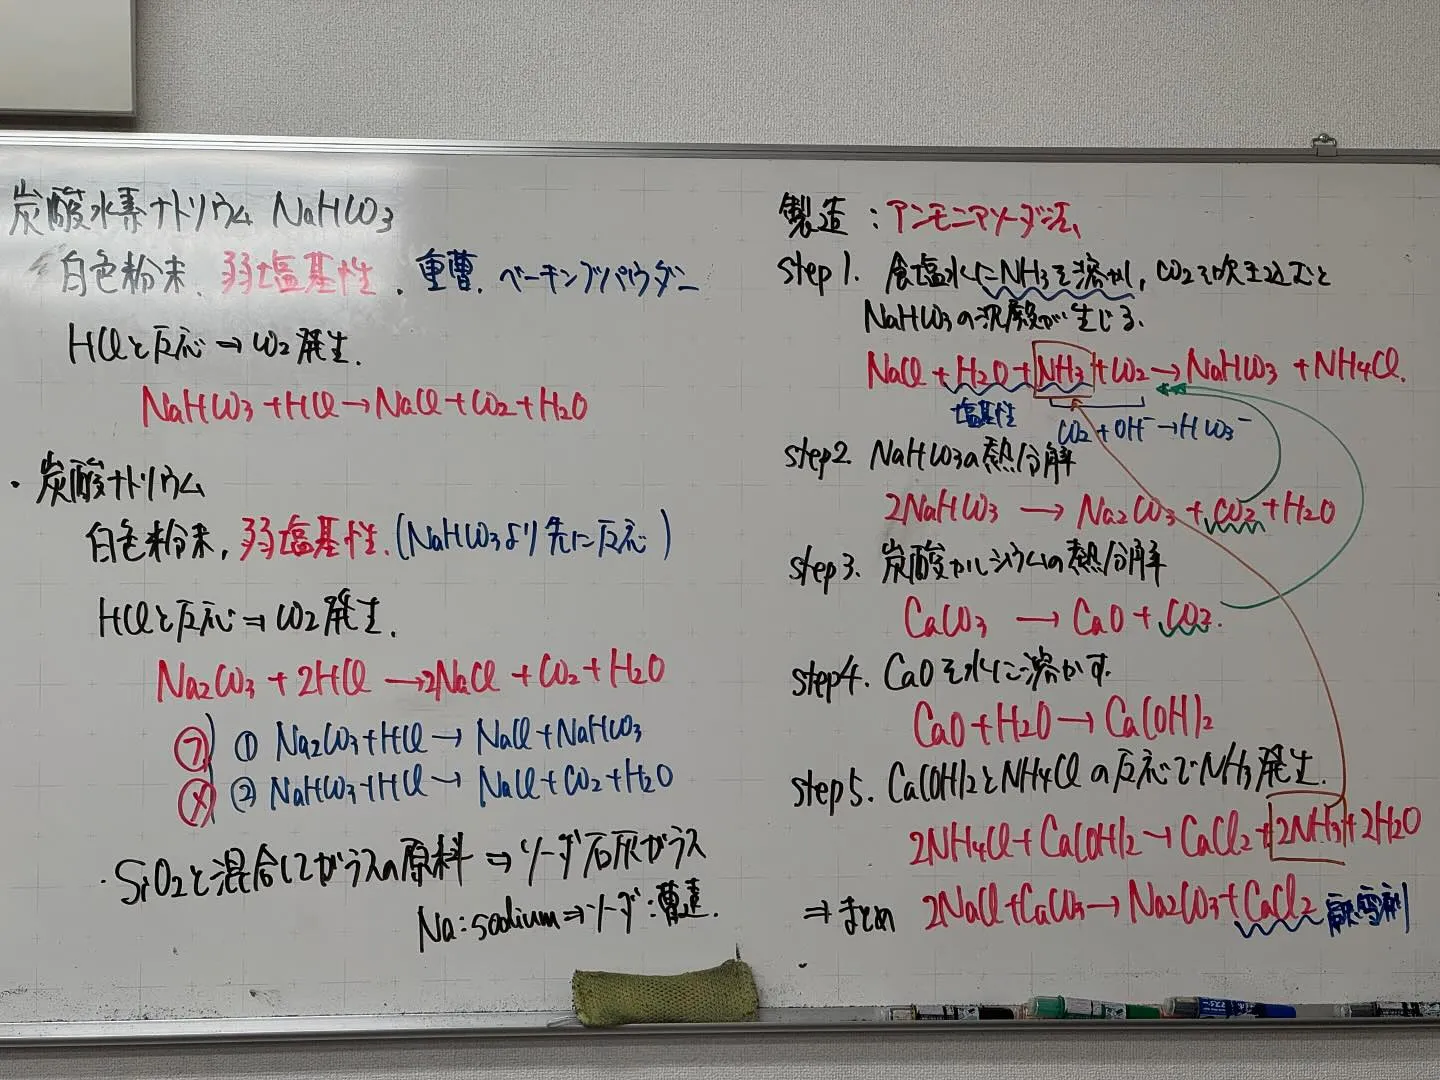 炭酸水素ナトリウム NaHCO3
白色粉末、弱塩基性、重曹、ベーキングパウダー
HClと反応→CO2発生.
NaHCO3+HCl→NaCl+CO2+H2O
・炭酸ナトリウム
白色粉末, 弱塩基性、(NaHCO3より先に反応)
HClと反応⇒CO2発生.
Na2CO3+2HCl→2NaCl+CO2+H2O
㋐ ① Na2CO3+HCl→NaCl+NaHCO3
② NaHCO3+HCl→NaCl+CO2+H2O
・SiO2と混合してガラスの原料⇒ソーダ石灰ガラス
Na:sodium⇒ソーダ:曹達.
製造:アンモニアソーダ法
step1. 食塩水にNH3を溶かし, CO2を吹き込むと
NaHCO3の沈殿が生じる.
NaCl+H2O+NH3+CO2→NaHCO3+NH4Cl.
塩基性 CO2+OH⁻→HCO3⁻
step2. NaHCO3の熱分解
2NaHCO3→Na2CO3+CO2+H2O
step3. 炭酸カルシウムの熱分解
CaCO3→CaO+CO2.
step4. CaOを水に溶かす.
CaO+H2O→Ca(OH)2
step5. Ca(OH)2とNH4Clの反応でNH3発生.
2NH4Cl+Ca(OH)2→CaCl2+2NH3+2H2O
⇒まとめ 2NaCl+CaCO3→Na2CO3+CaCl2 融雪剤